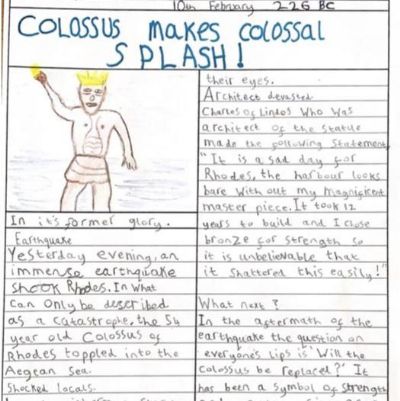 10th February 226 BC
COLOSSUS makes colossal
SPLASH!
In it's former glory.
Earthquake
Yesterday evening, an
immense earthquake
shook Rhodes. In what
can only be described
as a catastrophe, the 54
year old Colossus of
Rhodes toppled into the
Aegean Sea.
Shocked locals.
their eyes.
Architect devasted
Charles of Lindos who was
architect of the statue
made the following statement
"It is a sad day for
Rhodes, the harbour looks
bare with out my magnificent
master piece. It took 12
years to build and I chose
bronze for strength so
it is unbelievable that
it shattered this easily!"
What next?
In the aftermath of the
earthquake the question on
everyone's lips is 'Will the
colossus be replaced?' It
has been a symbol of strength